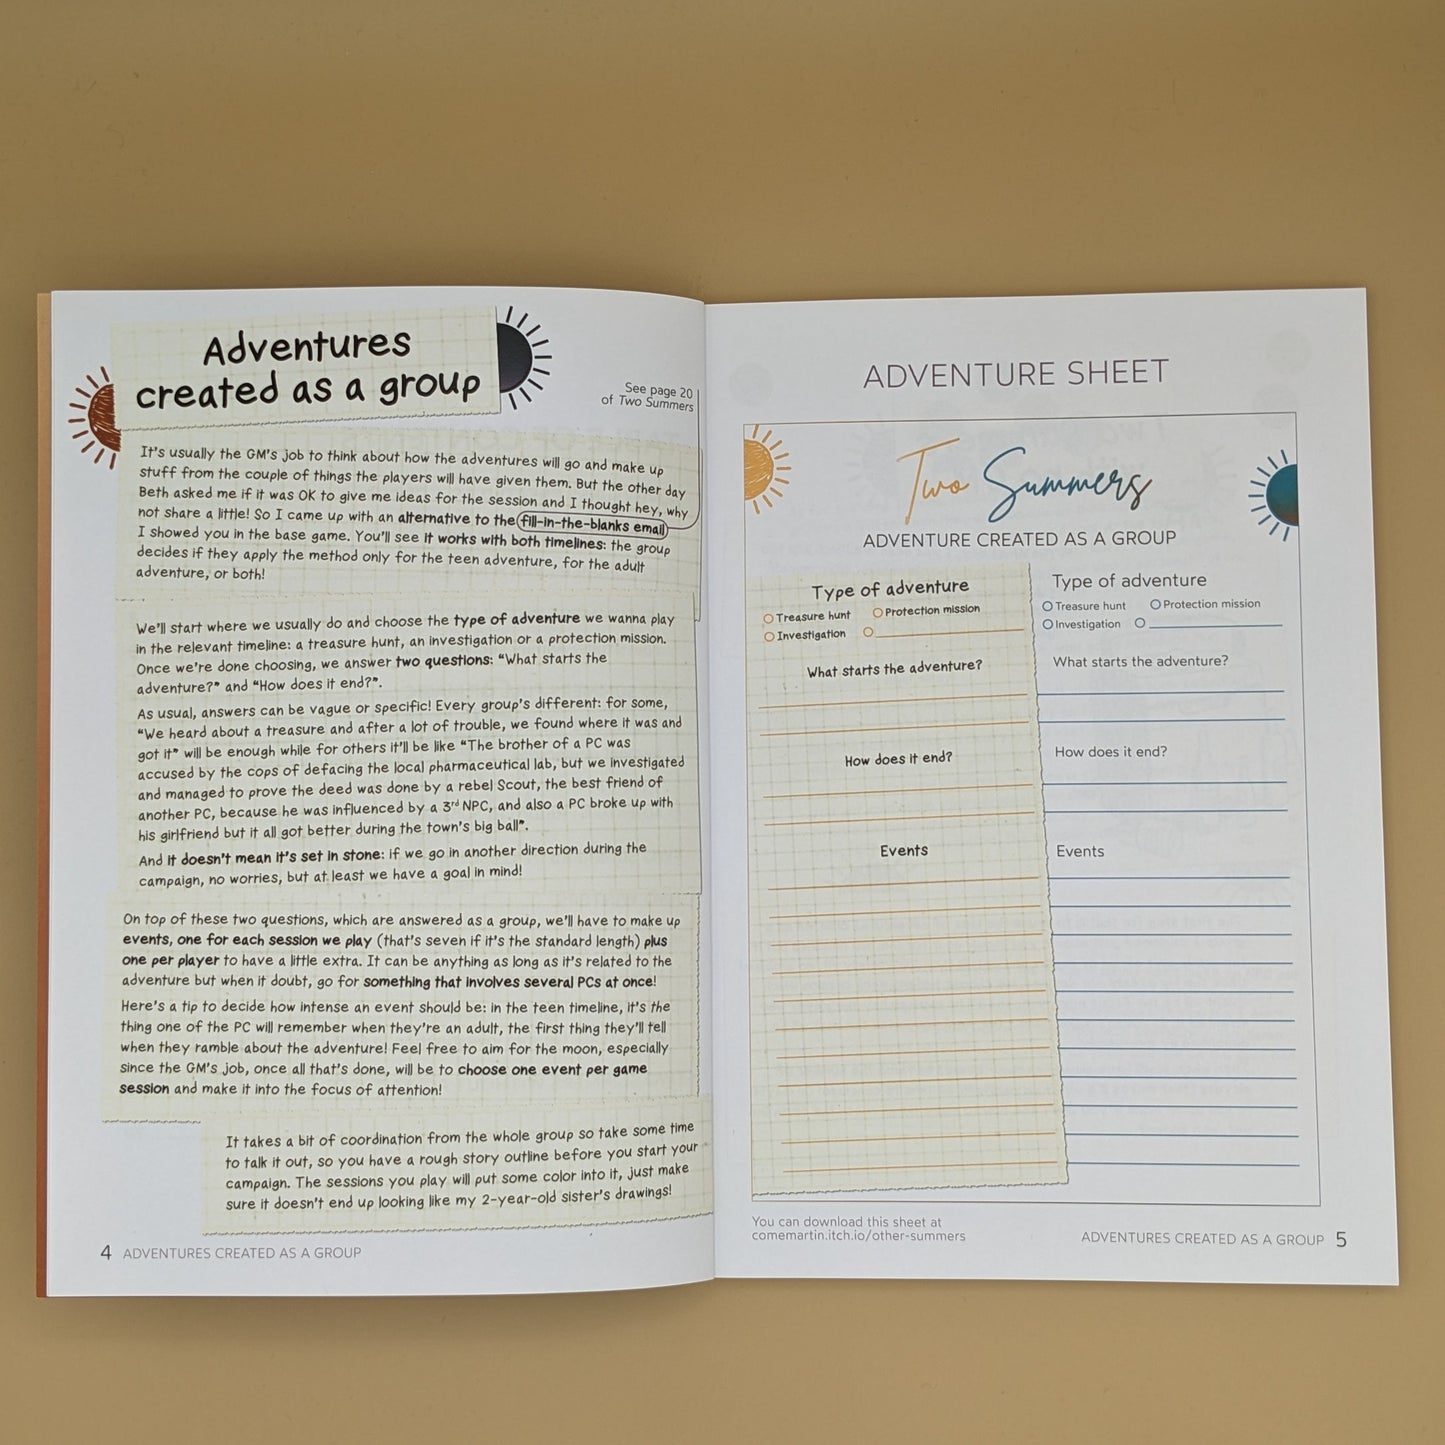 Adventures
created as a group
See page 20
of Two Summers
It's usually the GM's job to think about how the adventures will go and make up
stuff from the couple of things the players will have given them. But the other day
Beth asked me if it was OK to give me ideas for the session and I thought hey, why
not share a little! So I came up with an alternative to the fill-in-the-blanks email
I showed you in the base game. You'll see it works with both timelines: the group
decides if they apply the method only for the teen adventure, for the adult
adventure, or both!
We'll start where we usually do and choose the type of adventure we wanna play
in the relevant timeline: a treasure hunt, an investigation or a protection mission.
Once we're done choosing, we answer two questions: "What starts the
adventure?" and "How does it end?".
As usual, answers can be vague or specific! Every group's different: for some,
"We heard about a treasure and after a lot of trouble, we found where it was and
got it" will be enough while for others it'll be like "The brother of a PC was
accused by the cops of defacing the local pharmaceutical lab, but we investigated
and managed to prove the deed was done by a rebel Scout, the best friend of
another PC, because he was influenced by a 3rd NPC, and also a PC broke up with
his girlfriend but it all got better during the town's big ball".
And it doesn't mean it's set in stone: if we go in another direction during the
campaign, no worries, but at least we have a goal in mind!
On top of these two questions, which are answered as a group, we'll have to make up
events, one for each session we play (that's seven if it's the standard length) plus
one per player to have a little extra. It can be anything as long as it's related to the
adventure but when it doubt, go for something that involves several PCs at once!
Here's a tip to decide how intense an event should be: in the teen timeline, it's the
thing one of the PC will remember when they're an adult, the first thing they'll tell
when they ramble about the adventure! Feel free to aim for the moon, especially
since the GM's job, once all that's done, will be to choose one event per game
session and make it into the focus of attention!
It takes a bit of coordination from the whole group so take some time
to talk it out, so you have a rough story outline before you start your
campaign. The sessions you play will put some color into it, just make
sure it doesn't end up looking like my 2-year-old sister's drawings!
4 ADVENTURES CREATED AS A GROUP
ADVENTURE SHEET
Two Summers
ADVENTURE CREATED AS A GROUP
Type of adventure
Treasure hunt Protection mission
Investigation
What starts the adventure?
How does it end?
Events
Type of adventure
Treasure hunt Protection mission
Investigation
What starts the adventure?
How does it end?
Events
You can download this sheet at
comemartin.itch.io/other-summers
ADVENTURES CREATED AS A GROUP 5